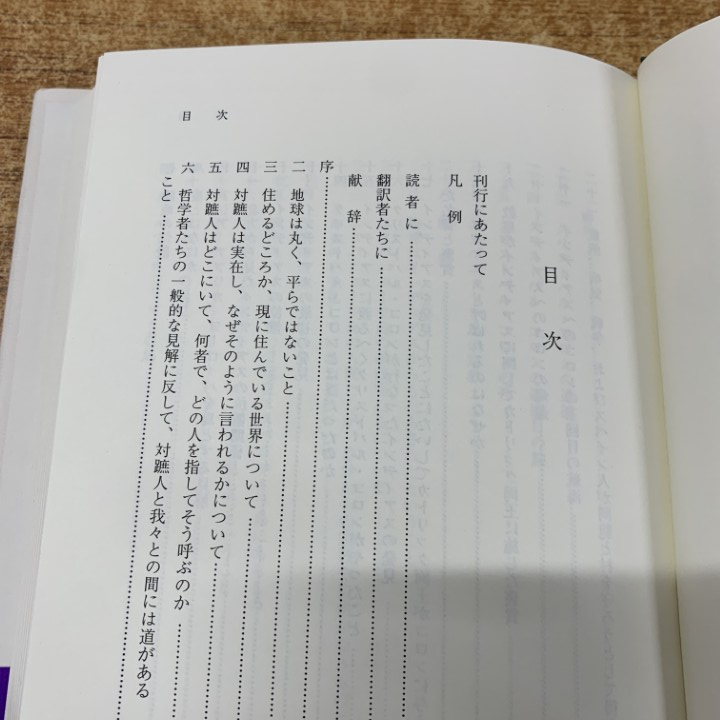 目次
目次
刊行にあたって
凡例
読者に
翻訳者たちに
献辞
序
二 地球は丸く、平らではないこと
三 住めるどころか、現に住んでいる世界について
四 対蹠人は実在し、なぜそのように言われるかについて
五 対蹠人はどこにいて、何者で、どの人を指してそう呼ぶのか
六 哲学者たちの一般的な見解に反して、対蹠人と我々との間には道がある
こと